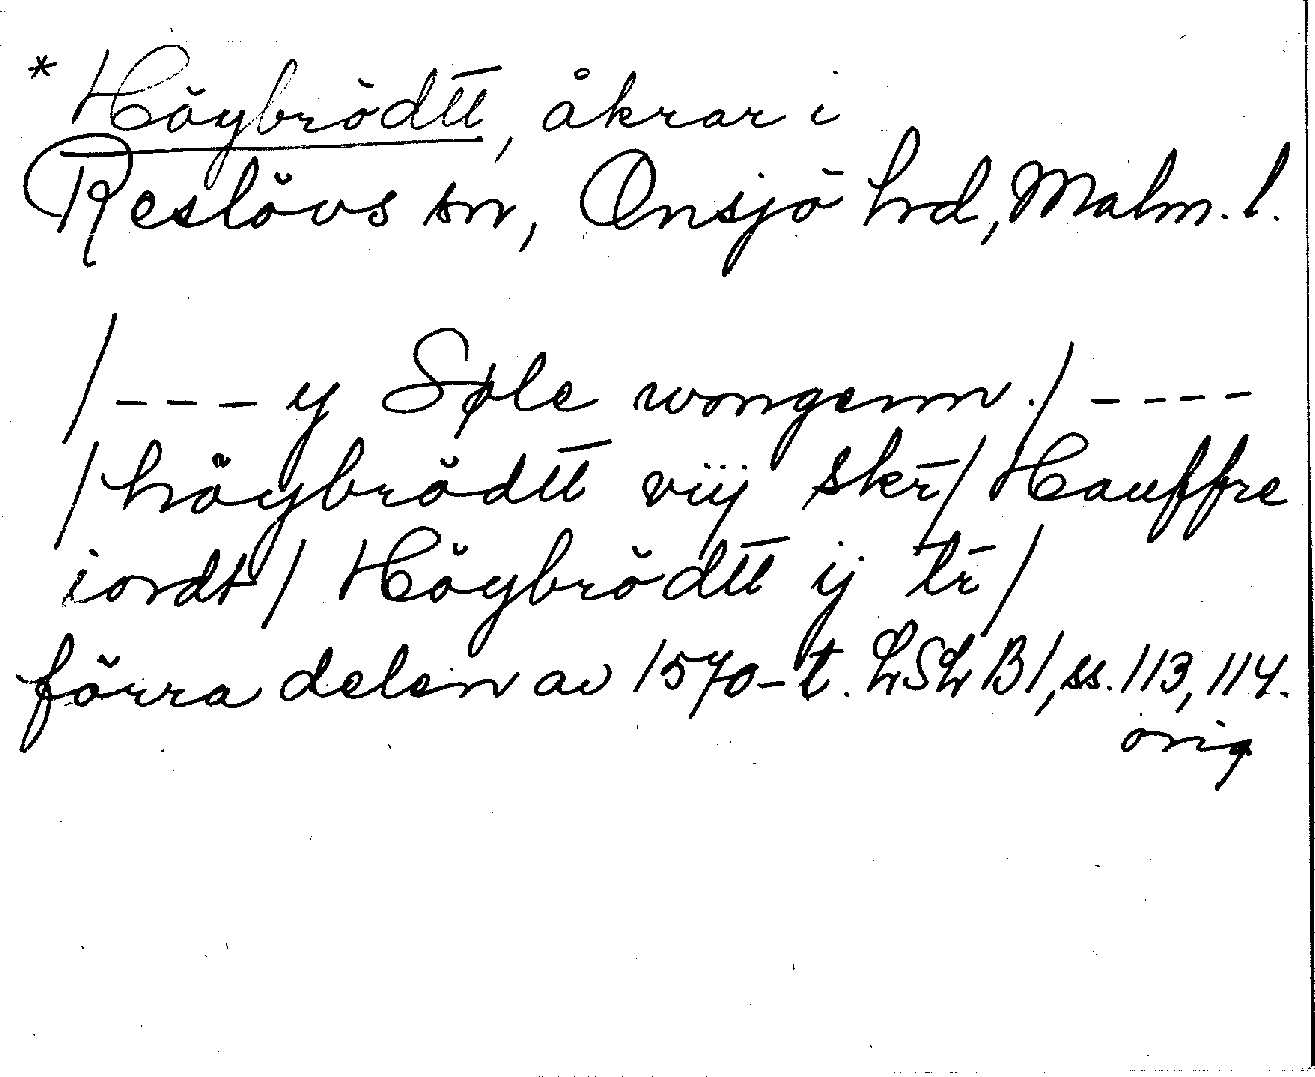 * Höybrödtt̅, åkrar i
Reslövs sn, Onsjö hrd, Malm. l.
/ - - - y Søle wongenn. / - - - -
/ höybrödtt̅ vij skr̅ / Hauffre
iordt / Höybrödtt̅ ij tr̅ /
förra delen av 1570-t. LSLB1, ss. 113, 114.
orig